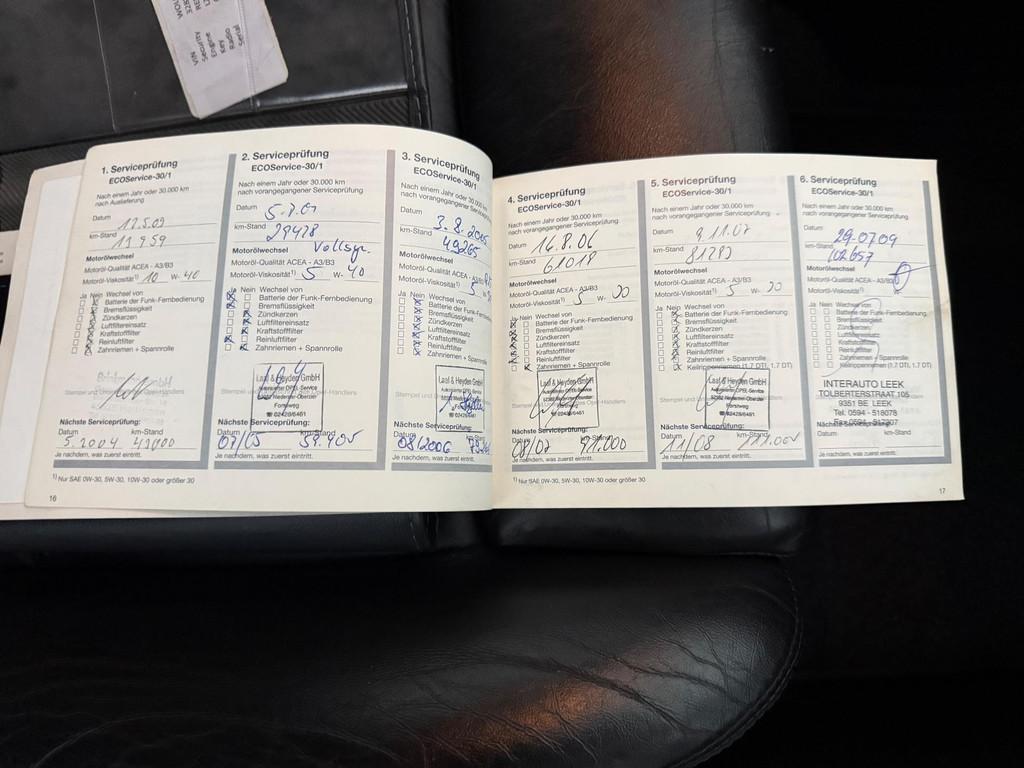 VIN
Security
Engine
Key
Radio
Serial
1. Serviceprüfung
ECOService-30/1
Nach einem Jahr oder 30.000 km
nach Auslieferung
Datum
km-Stand
11959
Motorölwechsel
Motoröl-Qualität ACEA - A3/B3
Motoröl-Viskosität¹) 10 W- 40
Ja Nein Wechsel von
Batterie der Funk-Fernbedienung
Bremsflüssigkeit
Zündkerzen
Luftfiltereinsatz
Kraftstofffilter
Reinluftfilter
Zahnriemen + Spannrolle
Nächste Serviceprüfung:
Datum km-Stand
5.2004
Je nachdem, was zuerst eintritt.
2. Serviceprüfung
ECOService-30/1
Nach einem Jahr oder 30.000 km
nach vorangegangener Serviceprüfung
Datum
km-Stand
29428
Motorölwechsel
Motoröl-Qualität ACEA - A3/B3
Motoröl-Viskosität¹) 5 W- 40
Ja Nein Wechsel von
Batterie der Funk-Fernbedienung
Bremsflüssigkeit
Zündkerzen
Luftfiltereinsatz
Kraftstofffilter
Reinluftfilter
Zahnriemen + Spannrolle
Laaf & Heyden GmbH
Autorisierter OPEL-Service
Forstweg
☎ 02428/6461
Nächste Serviceprüfung:
Datum km-Stand
07/05 59.405
Je nachdem, was zuerst eintritt.
3. Serviceprüfung
ECOService-30/1
Nach einem Jahr oder 30.000 km
nach vorangegangener Serviceprüfung
Datum
3.8.2005
km-Stand
49265
Motorölwechsel
Motoröl-Qualität ACEA - A3/B3
Motoröl-Viskosität¹) 5
Ja Nein Wechsel von
Batterie der Funk-Fernbedienung
Bremsflüssigkeit
Zündkerzen
Luftfiltereinsatz
Kraftstofffilter
Reinluftfilter
Zahnriemen + Spannrolle
Laaf & Heyden GmbH
☎ 02428/6461
Nächste Serviceprüfung:
08/2006
Je nachdem, was zuerst eintritt.
¹) Nur SAE 0W-30, 5W-30, 10W-30 oder größer 30
16
4. Serviceprüfung
ECOService-30/1
Nach einem Jahr oder 30.000 km
nach vorangegangener Serviceprüfung
Datum 16.8.06
km-Stand 61018
Motorölwechsel
Motoröl-Qualität ACEA - A3/B3
Motoröl-Viskosität¹) 5 W-
Ja Nein Wechsel von
Batterie der Funk-Fernbedienung
Bremsflüssigkeit
Zündkerzen
Luftfiltereinsatz
Kraftstofffilter
Reinluftfilter
Zahnriemen + Spannrolle
Laaf & Heyden GmbH
☎ 02428/6461
Nächste Serviceprüfung:
Datum km-Stand
08/07 91.000
Je nachdem, was zuerst eintritt.
5. Serviceprüfung
ECOService-30/1
Nach einem Jahr oder 30.000 km
nach vorangegangener Serviceprüfung
Datum 9.11.07
km-Stand 81293
Motorölwechsel
Motoröl-Qualität ACEA - A3/B3
Motoröl-Viskosität¹) 5 W-
Ja Nein Wechsel von
Batterie der Funk-Fernbedienung
Bremsflüssigkeit
Zündkerzen
Luftfiltereinsatz
Kraftstofffilter
Reinluftfilter
Zahnriemen + Spannrolle
Keilrippenriemen (1.7 DTI, 1.7 DT)
Laaf & Heyden GmbH
☎ 02428/6461
Nächste Serviceprüfung:
Datum km-Stand
11/08
Je nachdem, was zuerst eintritt.
6. Serviceprüfung
ECOService-30/1
Nach einem Jahr oder 30.000 km
nach vorangegangener Serviceprüfung
Datum 29.07.09
km-Stand 102657
Motorölwechsel
Motoröl-Qualität ACEA - A3/B3
Motoröl-Viskosität¹)
Ja Nein Wechsel von
Batterie der Funk-Fernbedienung
Bremsflüssigkeit
Zündkerzen
Luftfiltereinsatz
Kraftstofffilter
Reinluftfilter
Zahnriemen + Spannrolle
Keilrippenriemen (1.7 DTI, 1.7 DT)
INTERAUTO LEEK
TOLBERTERSTRAAT 105
9351 BE LEEK
Tel. 0594 - 518078
Nächste Serviceprüfung:
Datum km-Stand
Je nachdem, was zuerst eintritt.
¹) Nur SAE 0W-30, 5W-30, 10W-30 oder größer 30
17